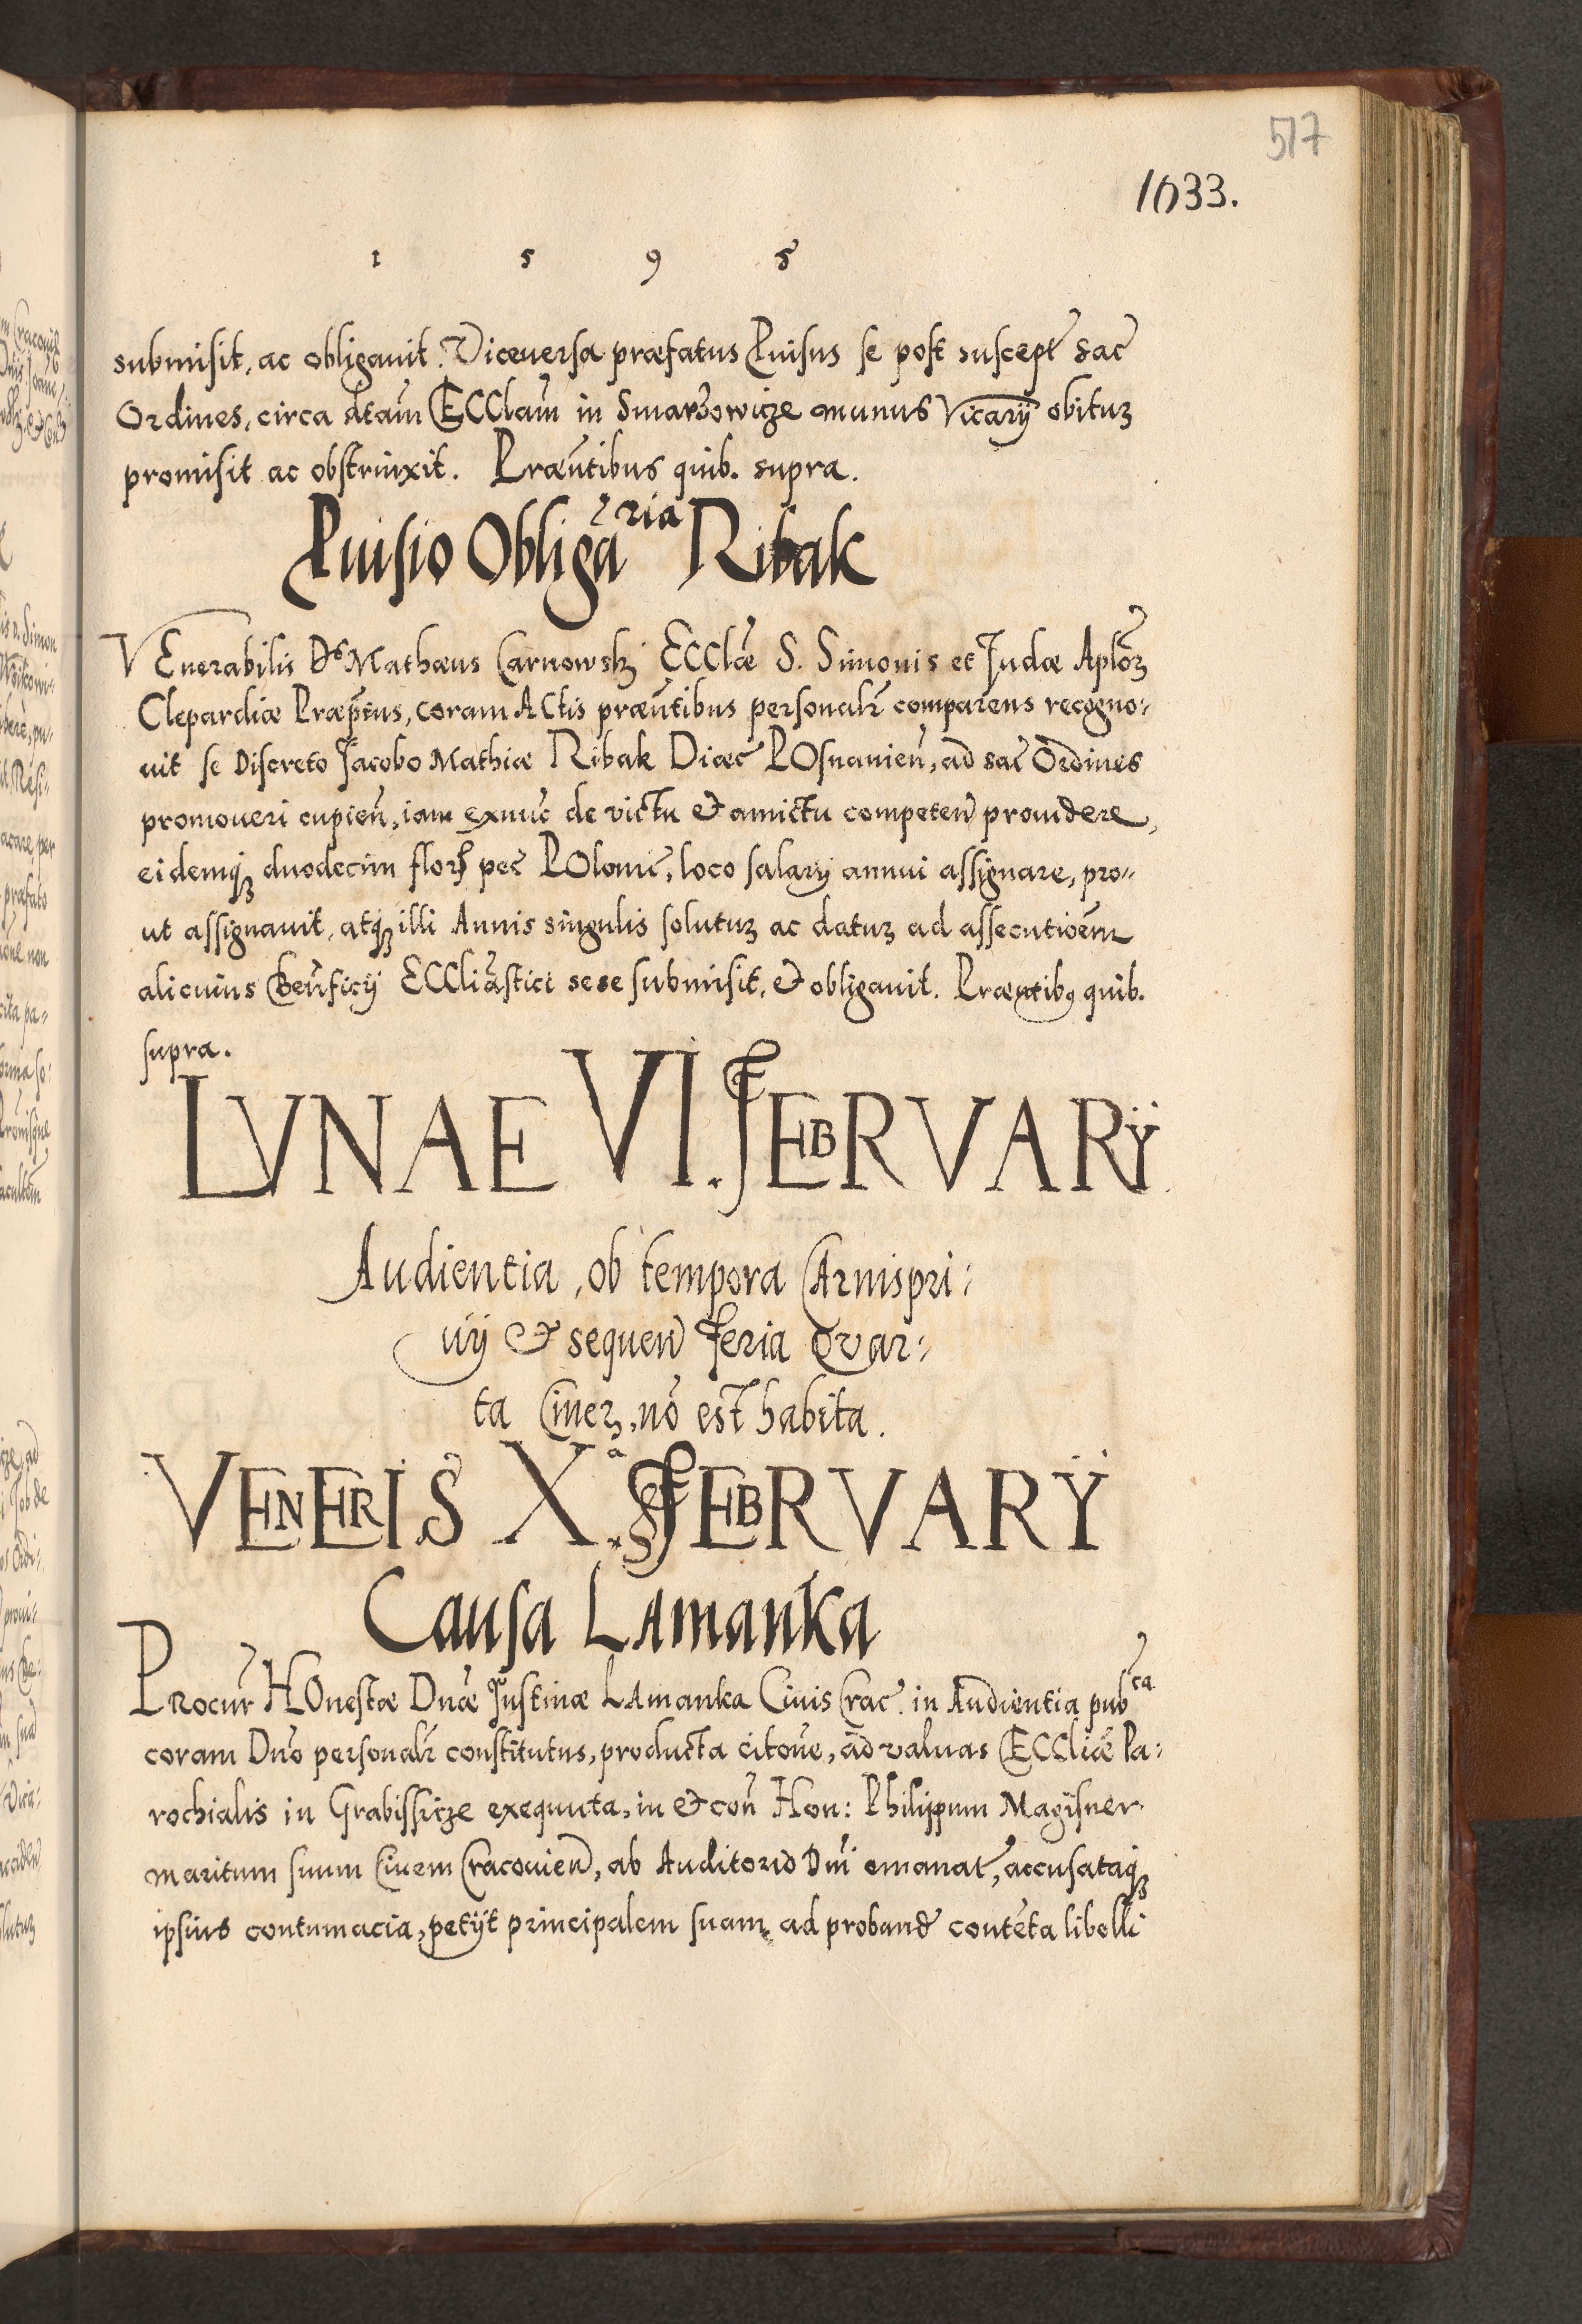 517
1033.
1 5 9 5
submisit, ac obligauit. Viceuersa præfatus Puisus se post suscept sac
Ordines, circa dtam ECClam in Smarzowicze munus Vicarÿ obituȝ
promisit ac obstrinxit. Præntibus quib. supra.
Puisio Obligaria Ribak
VEnerabilis Ds Mathæus Carnowskj ECClæ S. Simonis et Judæ Aplorȝ
Clepardiæ Præptus, coram ACtis præntibus personalr comparens recogno⸗
uit se Discreto Jacobo Mathiæ Ribak Diæc POsnanien, ad sac Ordines
promoueri cupien, iam exnuc de victu & amictu competen prouidere,
eidemqȝ duodecim flor pec POlonic, loco salarÿ annui assignare, pro⸗
ut assignauit, atqȝ illi Annis singulis solutuȝ ac datuȝ ad assecutioem
alicuius Benficÿ ECCliastici sese submisit, & obligauit. Præntibꝰ quib.
supra.
LVNAE VI. FEBRVARŸ
Audientia, ob tempora CArnispri⸗
uÿ & sequen feria Qvar⸗
ta Cinerȝ, nō est habita.
VENERIS X.a FEBRVARŸ
Causa LAmanka
Procur HOnestæ Dnæ Justinæ LAmanka Ciuis Crac. in Audientia pubca
coram Dno personalr constitutus, producta citone, ad valuas ECCliæ Pa⸗
rochialis in Grabissicze exequuta, in & con Hon: Philippum Magisner
maritum suum Ciuem Cracouien, ab Auditorio Dni emanat, accusataqȝ
ipsius contumacia, petÿt principalem suam ad proband contēta libelli